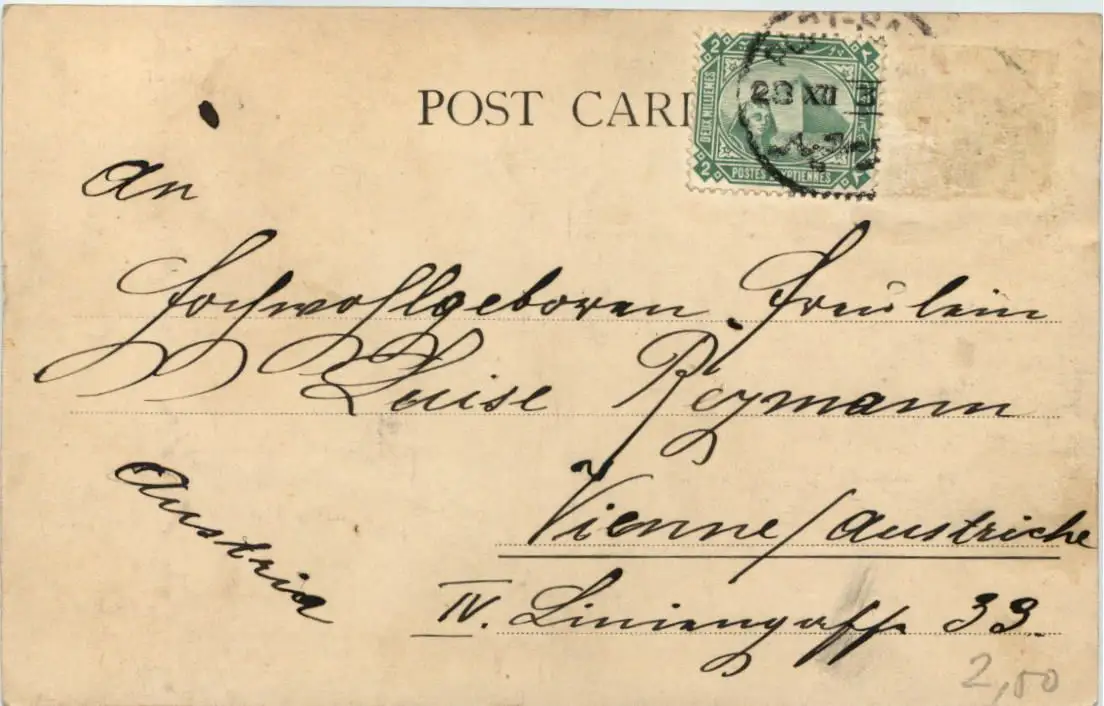 POST CARD
2
DEUX MILLIEMES
POSTES EGYPTIENNES
2
23 XII
An
Hochwohlgeboren Fräulein
Luise Reymann
Austria
Vienne/Austriche
IV. Liniengasse 33.
2,50